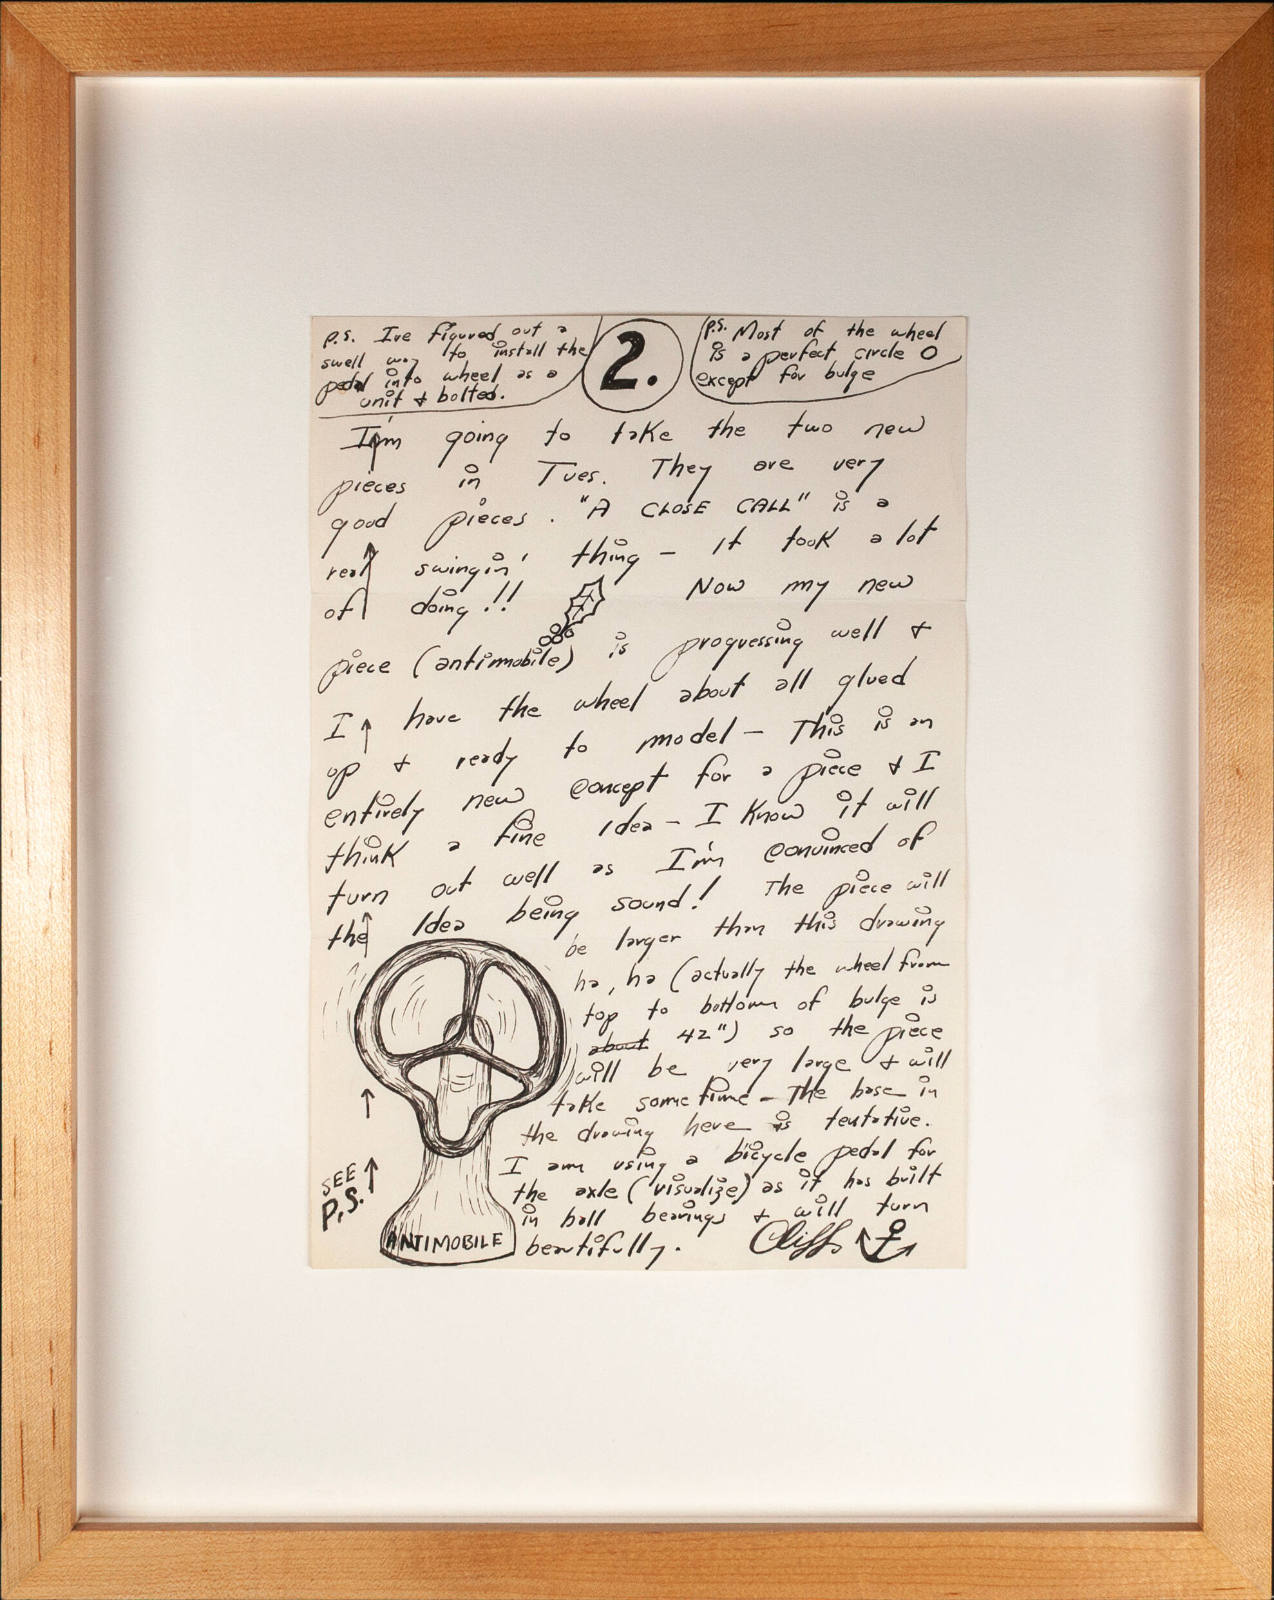 p.s. Ive figured out a
swell way to install the
pedal into wheel as a
unit & bolted.
2.
P.S. Most of the wheel
is a perfect circle O
except for bulge
I'm going to take the two new
pieces in Tues. They are very
good pieces. "A CLOSE CALL" is a
real swingin' thing — It took a lot
of doing!! Now my new
piece (antimobile) is progressing well &
I have the wheel about all glued
up & ready to model — This is an
entirely new concept for a piece & I
think a fine idea — I know it will
turn out well as I'm convinced of
the Idea being sound! The piece will
be larger than this drawing
ha, ha (actually the wheel from
top to bottom of bulge is
about 42") so the piece
will be very large & will
take some time — The base in
the drawing here is tentative.
I am using a bicycle pedal for
the axle (visualize) as it has built
in ball bearings & will turn
beautifully. Cliff
SEE
P.S.
ANTIMOBILE